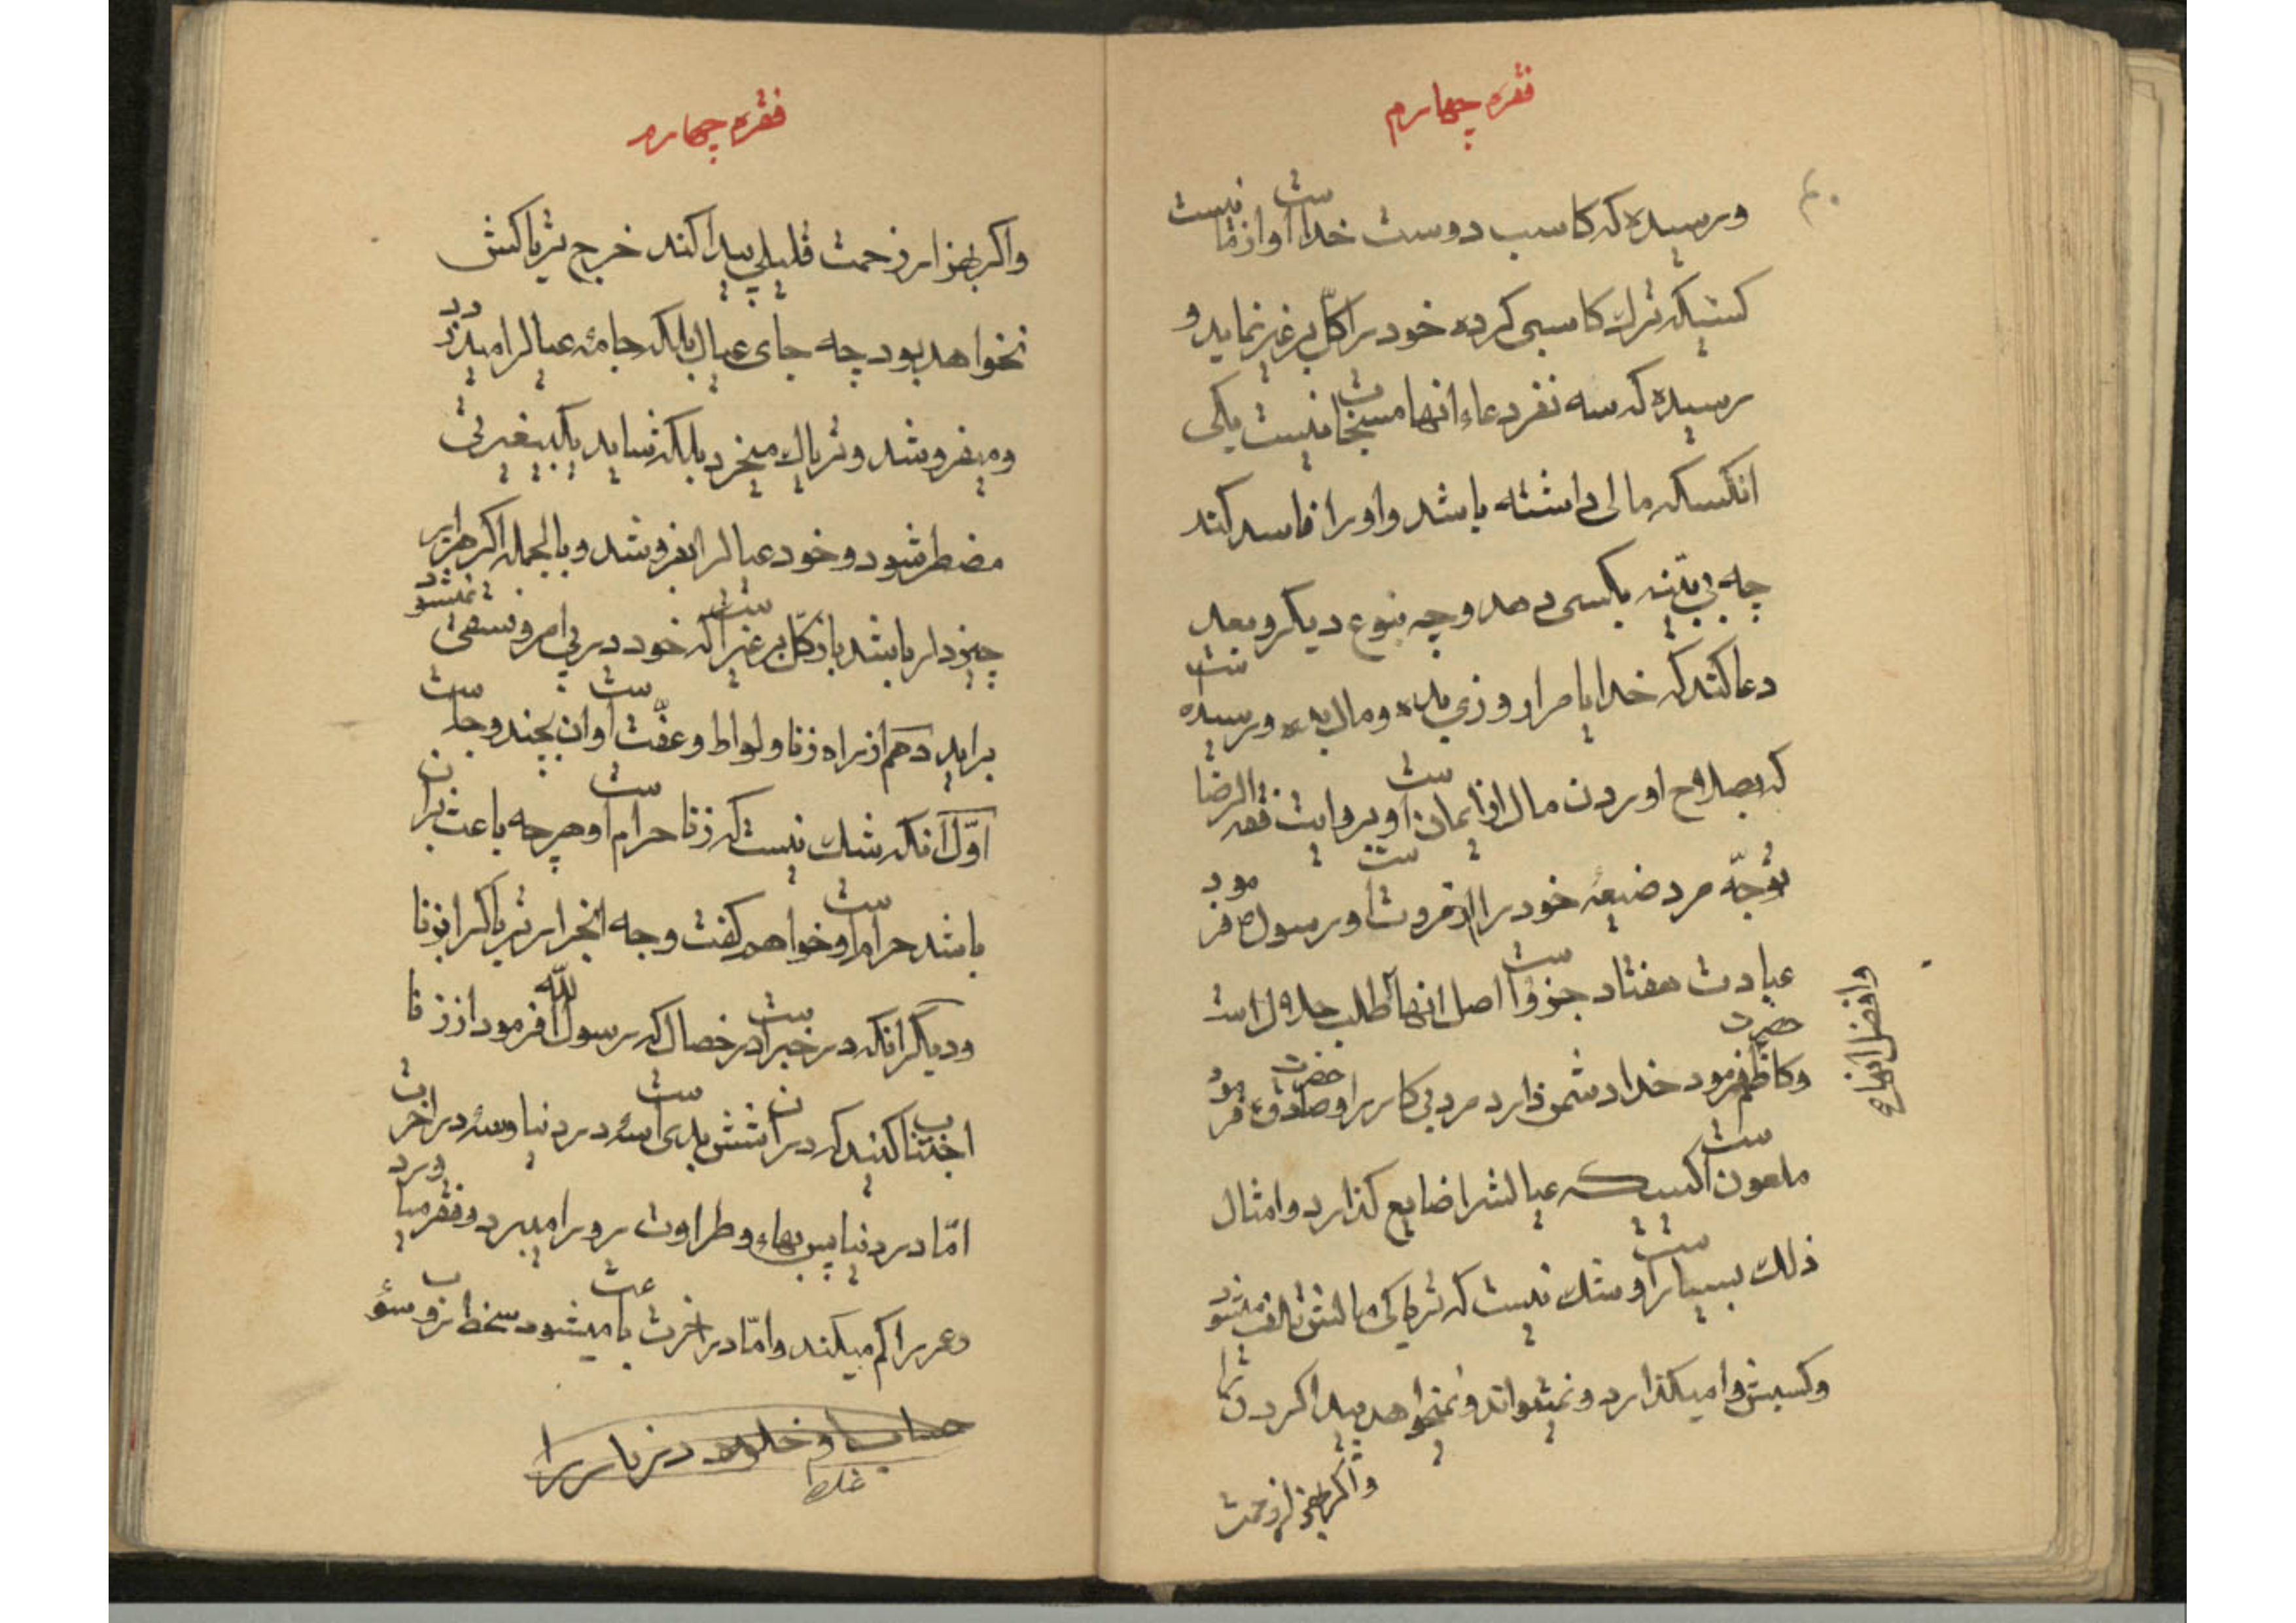 فقره چهارم
ورسیده که کاسب دوست خدا است و از ما نیست
کسیکه ترک کاسبی کرده خود را کلّ بر غیر نماید و
رسیده که سه نفر دعاء انها مستجاب نیست یکی
انکسکه مالی داشته باشد و او را فاسد کند
چه بی بیّنه بکسی دهد و چه بنوع دیکر و بعد
دعا کند که خدایا مرا روزی بده و مال بده و رسیده است
که بصلاح اوردن مال از ایمان است و بروایت فقه الرضا
توجّه مرد ضیعهٔ خود را از مروت است و رسول ص فرمود
عبادت هفتاد جزو است اصل انها طلب حلال است
وافضل انها
و حضرت کاظم فرمود خدا دشمن دارد مرد بی کار را و حضرت صادق ع فرمود
ملعون است کسیکه عیالش را ضایع کذارد و امثال
ذلک بسیار است و شک نیست که تریاکی مالش تلف میشود
و کسبش وا میکذارد و نمیتواند و نمیخواهد پیدا کردن را
واکر بهزار زحمت
فقره چهارم
واکر بهزار زحمت قلیلی پیدا کند خرج تریاکش
نخواهد بود چه جای عیال بلکه جامهٔ عیال را میدزدد
و میفروشد و تریاک میخرد بلکه شاید بکبیغیرتی
مضطر شود و خود عیال را بفروشد و بالجمله اکر هزار
چیزدار باشد باز کلّ بر غیر است که خود در پی امر و سعی نمیشود
براید دهم از راه زنا و لواط و عفّت است و ان بچند وجه است
اوّل آنکه شک نیست که زنا حرام است و هرچه باعث بران
باشد حرام است و خواهم کفت وجه انجرار تریاک را بزنا
و دیکر انکه در خبر است در خصال که رسول الله فرمود از زنا
اجتناب کنید که در ان شش بدی است سه در دنیا و سه در اخرت
امّا در دنیا پس بهاء و طراوت رو را میبرد و فقر میاورد
و عمر را کم میکند و امّا در اخرت باعث میشود سخط رب و سوء
حساب و خلود در نار را
غلط